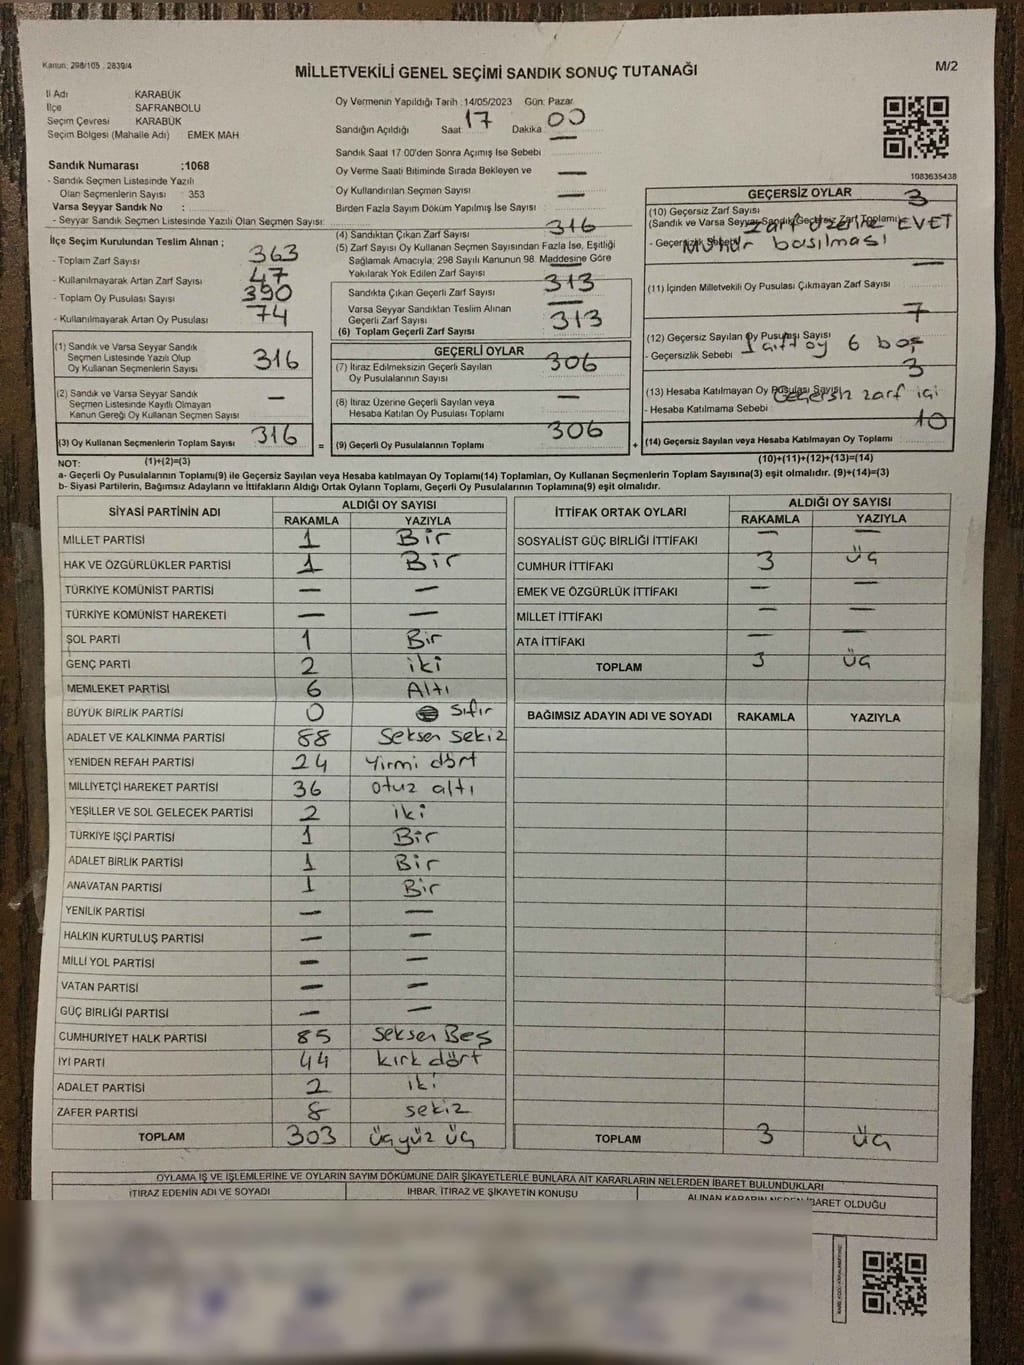 Kanun: 298/105 , 2839/4
MİLLETVEKİLİ GENEL SEÇİMİ SANDIK SONUÇ TUTANAĞI
M/2
İl Adı KARABÜK
İlçe SAFRANBOLU
Seçim Çevresi KARABÜK
Seçim Bölgesi (Mahalle Adı) EMEK MAH
Oy Vermenin Yapıldığı Tarih :14/05/2023 Gün: Pazar
Sandığın Açıldığı Saat 17 Dakika 00
Sandık Saat 17:00'den Sonra Açımış İse Sebebi —
Oy Verme Saati Bitiminde Sırada Bekleyen ve
Oy Kullandırılan Seçmen Sayısı —
Birden Fazla Sayım Döküm Yapılmış İse Sayısı —
1083635438
Sandık Numarası :1068
- Sandık Seçmen Listesinde Yazılı
Olan Seçmenlerin Sayısı : 353
Varsa Seyyar Sandık No :
- Seyyar Sandık Seçmen Listesinde Yazılı Olan Seçmen Sayısı:
İlçe Seçim Kurulundan Teslim Alınan ;
- Toplam Zarf Sayısı 363
- Kullanılmayarak Artan Zarf Sayısı 47
- Toplam Oy Pusulası Sayısı 390
- Kullanılmayarak Artan Oy Pusulası 74
(1) Sandık ve Varsa Seyyar Sandık
Seçmen Listesinde Yazılı Olup
Oy Kullanan Seçmenlerin Sayısı 316
(2) Sandık ve Varsa Seyyar Sandık
Seçmen Listesinde Kayıtlı Olmayan
Kanun Gereği Oy Kullanan Seçmen Sayısı —
(3) Oy Kullanan Seçmenlerin Toplam Sayısı 316
(1)+(2)=(3)
(4) Sandıktan Çıkan Zarf Sayısı 316
(5) Zarf Sayısı Oy Kullanan Seçmen Sayısından Fazla İse, Eşitliği
Sağlamak Amacıyla; 298 Sayılı Kanunun 98. Maddesine Göre
Yakılarak Yok Edilen Zarf Sayısı —
Sandıkta Çıkan Geçerli Zarf Sayısı 313
Varsa Seyyar Sandıktan Teslim Alınan
Geçerli Zarf Sayısı —
(6) Toplam Geçerli Zarf Sayısı 313
GEÇERLİ OYLAR
(7) İtiraz Edilmeksizin Geçerli Sayılan
Oy Pusulalarının Sayısı 306
(8) İtiraz Üzerine Geçerli Sayılan veya
Hesaba Katılan Oy Pusulası Toplamı —
= (9) Geçerli Oy Pusulalarının Toplamı 306
GEÇERSİZ OYLAR
(10) Geçersiz Zarf Sayısı 3
(Sandık ve Varsa Seyyar Sandık Geçersiz Zarf Toplamı)
- Geçersizlik Sebebi zarf üzerine EVET
Mühür basılması
(11) İçinden Milletvekili Oy Pusulası Çıkmayan Zarf Sayısı —
(12) Geçersiz Sayılan Oy Pusulası Sayısı 7
- Geçersizlik Sebebi 1 çift oy 6 boş
(13) Hesaba Katılmayan Oy Pusulası Sayısı 3
- Hesaba Katılmama Sebebi Geçersiz zarf içi
+ (14) Geçersiz Sayılan veya Hesaba Katılmayan Oy Toplamı 10
(10)+(11)+(12)+(13)=(14)
NOT:
a- Geçerli Oy Pusulalarının Toplamı(9) ile Geçersiz Sayılan veya Hesaba katılmayan Oy Toplamı(14) Toplamları, Oy Kullanan Seçmenlerin Toplam Sayısına(3) eşit olmalıdır. (9)+(14)=(3)
b- Siyasi Partilerin, Bağımsız Adayların ve İttifakların Aldığı Ortak Oyların Toplamı, Geçerli Oy Pusulalarının Toplamına(9) eşit olmalıdır.
SİYASİ PARTİNİN ADI ALDIĞI OY SAYISI
RAKAMLA YAZIYLA
MİLLET PARTİSİ 1 Bir
HAK VE ÖZGÜRLÜKLER PARTİSİ 1 Bir
TÜRKİYE KOMÜNİST PARTİSİ — —
TÜRKİYE KOMÜNİST HAREKETİ — —
SOL PARTİ 1 Bir
GENÇ PARTİ 2 iki
MEMLEKET PARTİSİ 6 Altı
BÜYÜK BİRLİK PARTİSİ 0 Sıfır
ADALET VE KALKINMA PARTİSİ 88 Seksen sekiz
YENİDEN REFAH PARTİSİ 24 Yirmi dört
MİLLİYETÇİ HAREKET PARTİSİ 36 otuz altı
YEŞİLLER VE SOL GELECEK PARTİSİ 2 iki
TÜRKİYE İŞÇİ PARTİSİ 1 Bir
ADALET BİRLİK PARTİSİ 1 Bir
ANAVATAN PARTİSİ 1 Bir
YENİLİK PARTİSİ — —
HALKIN KURTULUŞ PARTİSİ — —
MİLLİ YOL PARTİSİ — —
VATAN PARTİSİ — —
GÜÇ BİRLİĞİ PARTİSİ — —
CUMHURİYET HALK PARTİSİ 85 Seksen Beş
İYİ PARTİ 44 kırk dört
ADALET PARTİSİ 2 iki
ZAFER PARTİSİ 8 sekiz
TOPLAM 303 üçyüz üç
İTTİFAK ORTAK OYLARI ALDIĞI OY SAYISI
RAKAMLA YAZIYLA
SOSYALİST GÜÇ BİRLİĞİ İTTİFAKI — —
CUMHUR İTTİFAKI 3 üç
EMEK VE ÖZGÜRLÜK İTTİFAKI — —
MİLLET İTTİFAKI — —
ATA İTTİFAKI — —
TOPLAM 3 üç
BAĞIMSIZ ADAYIN ADI VE SOYADI RAKAMLA YAZIYLA
TOPLAM 3 üç
OYLAMA İŞ VE İŞLEMLERİNE VE OYLARIN SAYIM DÖKÜMÜNE DAİR ŞİKAYETLERLE BUNLARA AİT KARARLARIN NELERDEN İBARET BULUNDUKLARI
İTİRAZ EDENİN ADI VE SOYADI İHBAR, İTİRAZ VE ŞİKAYETİN KONUSU ALINAN KARARIN NEDEN İBARET OLDUĞU